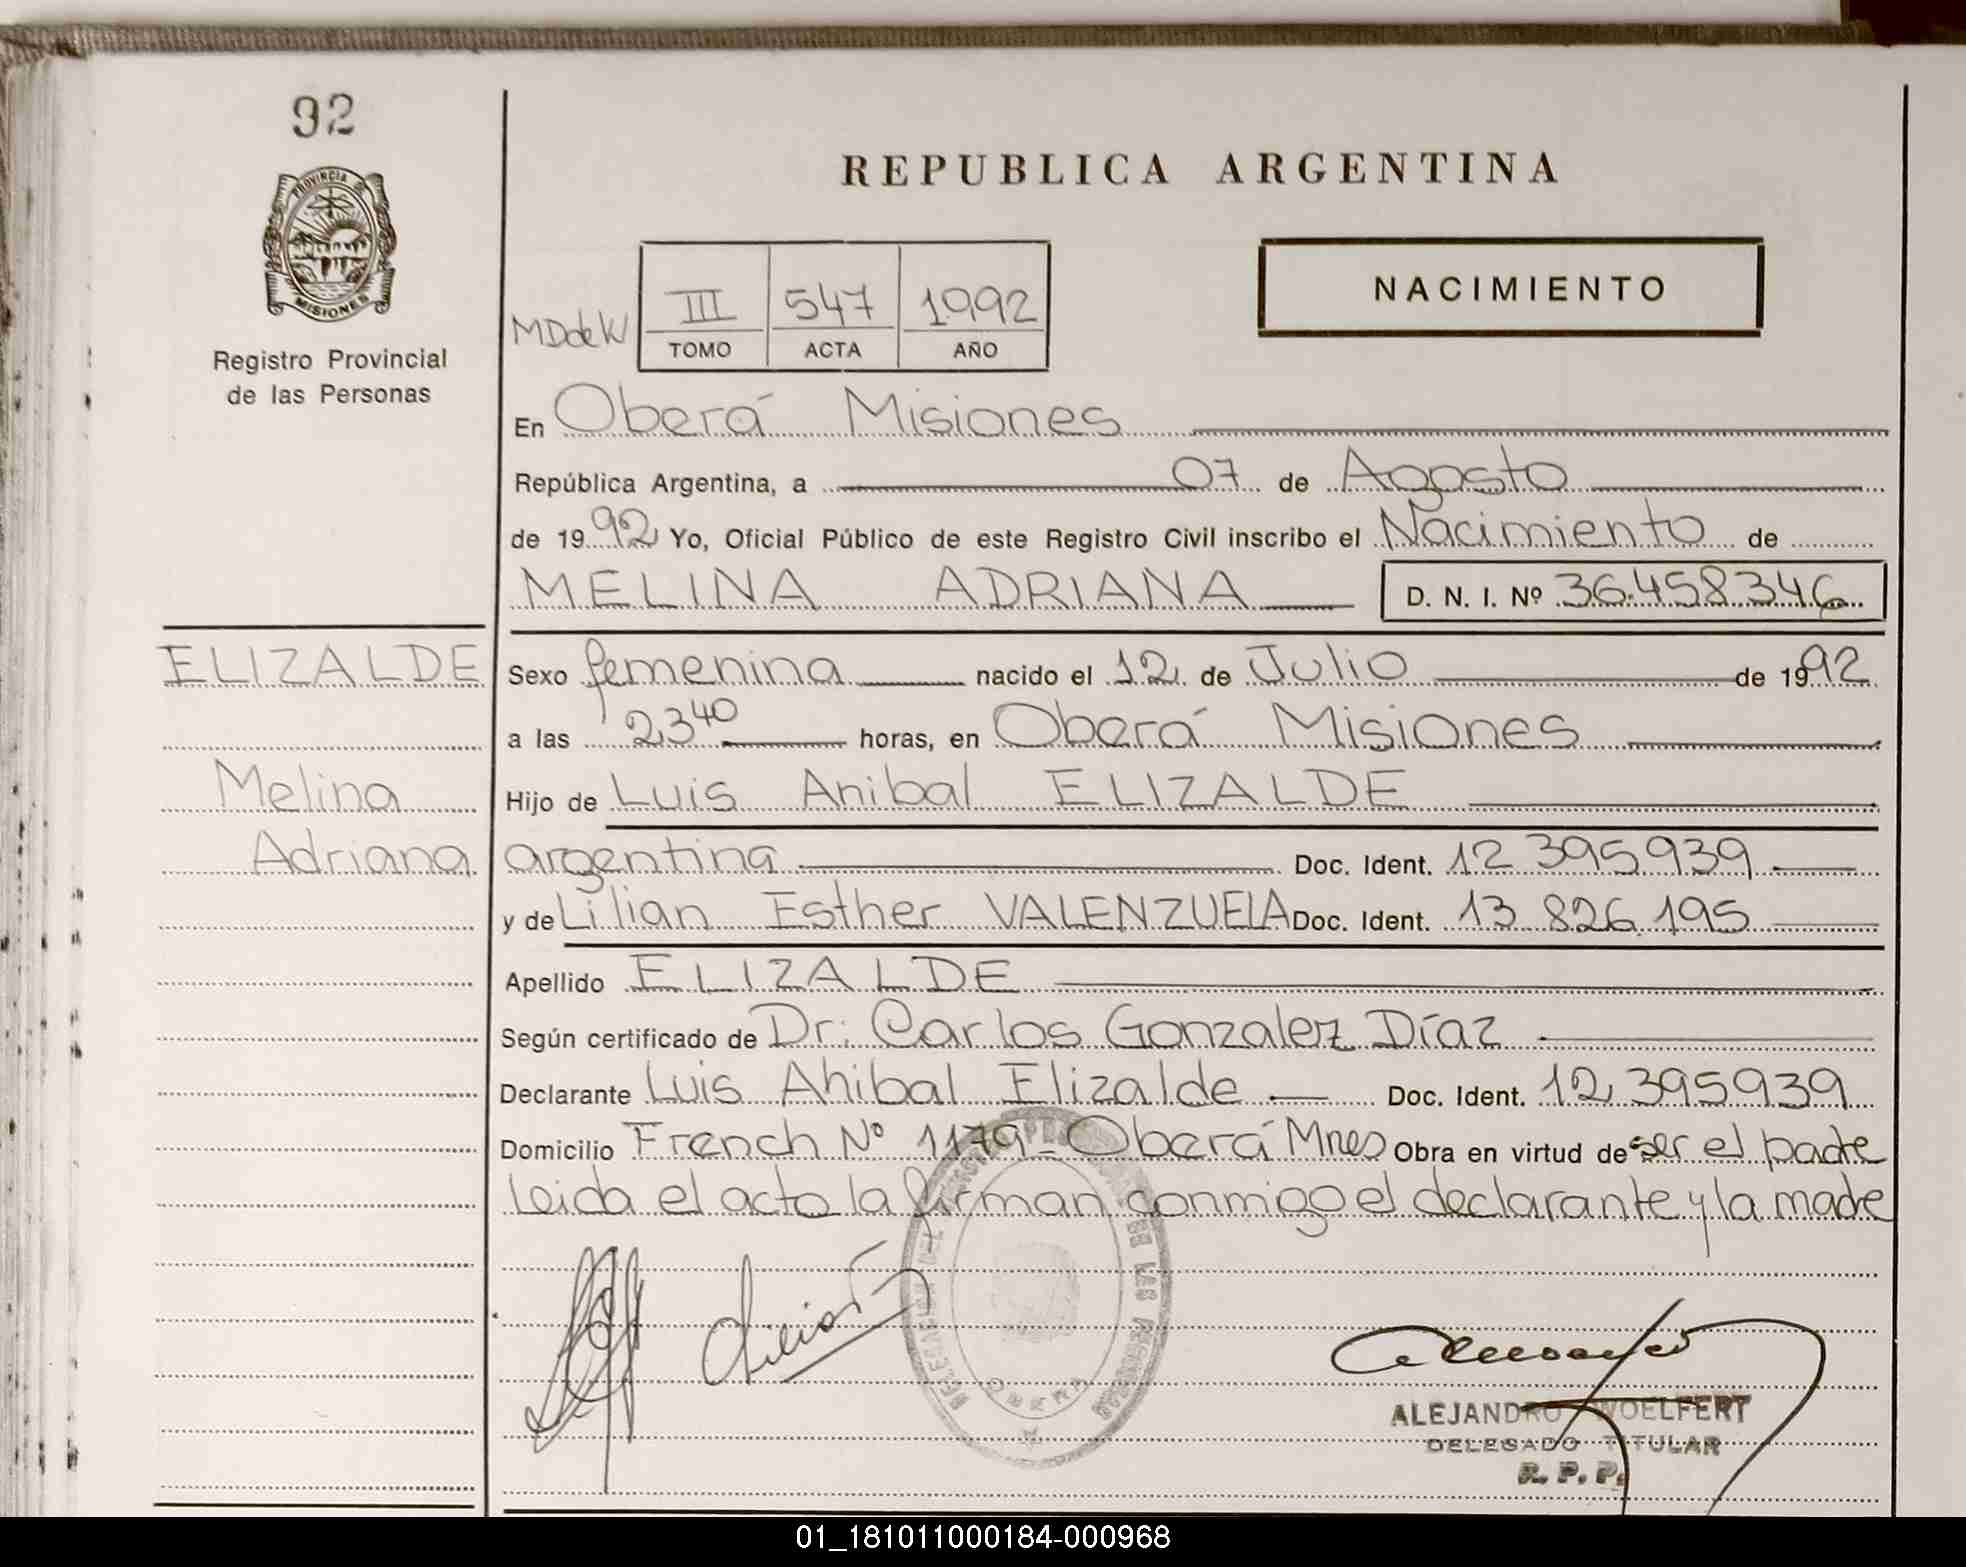 92
PROVINCIA DE
MISIONES
Registro Provincial
de las Personas
REPUBLICA ARGENTINA
NACIMIENTO
MDdeW
III 547 1992
TOMO ACTA AÑO
En Oberá Misiones
República Argentina, a 07 de Agosto
de 1992 Yo, Oficial Público de este Registro Civil inscribo el Nacimiento de
MELINA ADRIANA D. N. I. Nº 36.458.346
ELIZALDE
Melina
Adriana
Sexo femenina nacido el 12 de Julio de 1992
a las 23 40 horas, en Oberá Misiones
Hijo de Luis Anibal ELIZALDE
argentina Doc. Ident. 12.395939
y de Lilian Esther VALENZUELA Doc. Ident. 13.826.195
Apellido ELIZALDE
Según certificado de Dr: Carlos Gonzalez Díaz
Declarante Luis Anibal Elizalde Doc. Ident. 12.395939
Domicilio French Nº 1179 - Oberá Mnes Obra en virtud de ser el padre
Leida el acto la firman conmigo el declarante y la madre
DE LAS PERSONAS
OBERA
ALEJANDRO WOELFERT
DELEGADO TITULAR
R. P. P.
01_181011000184-000968